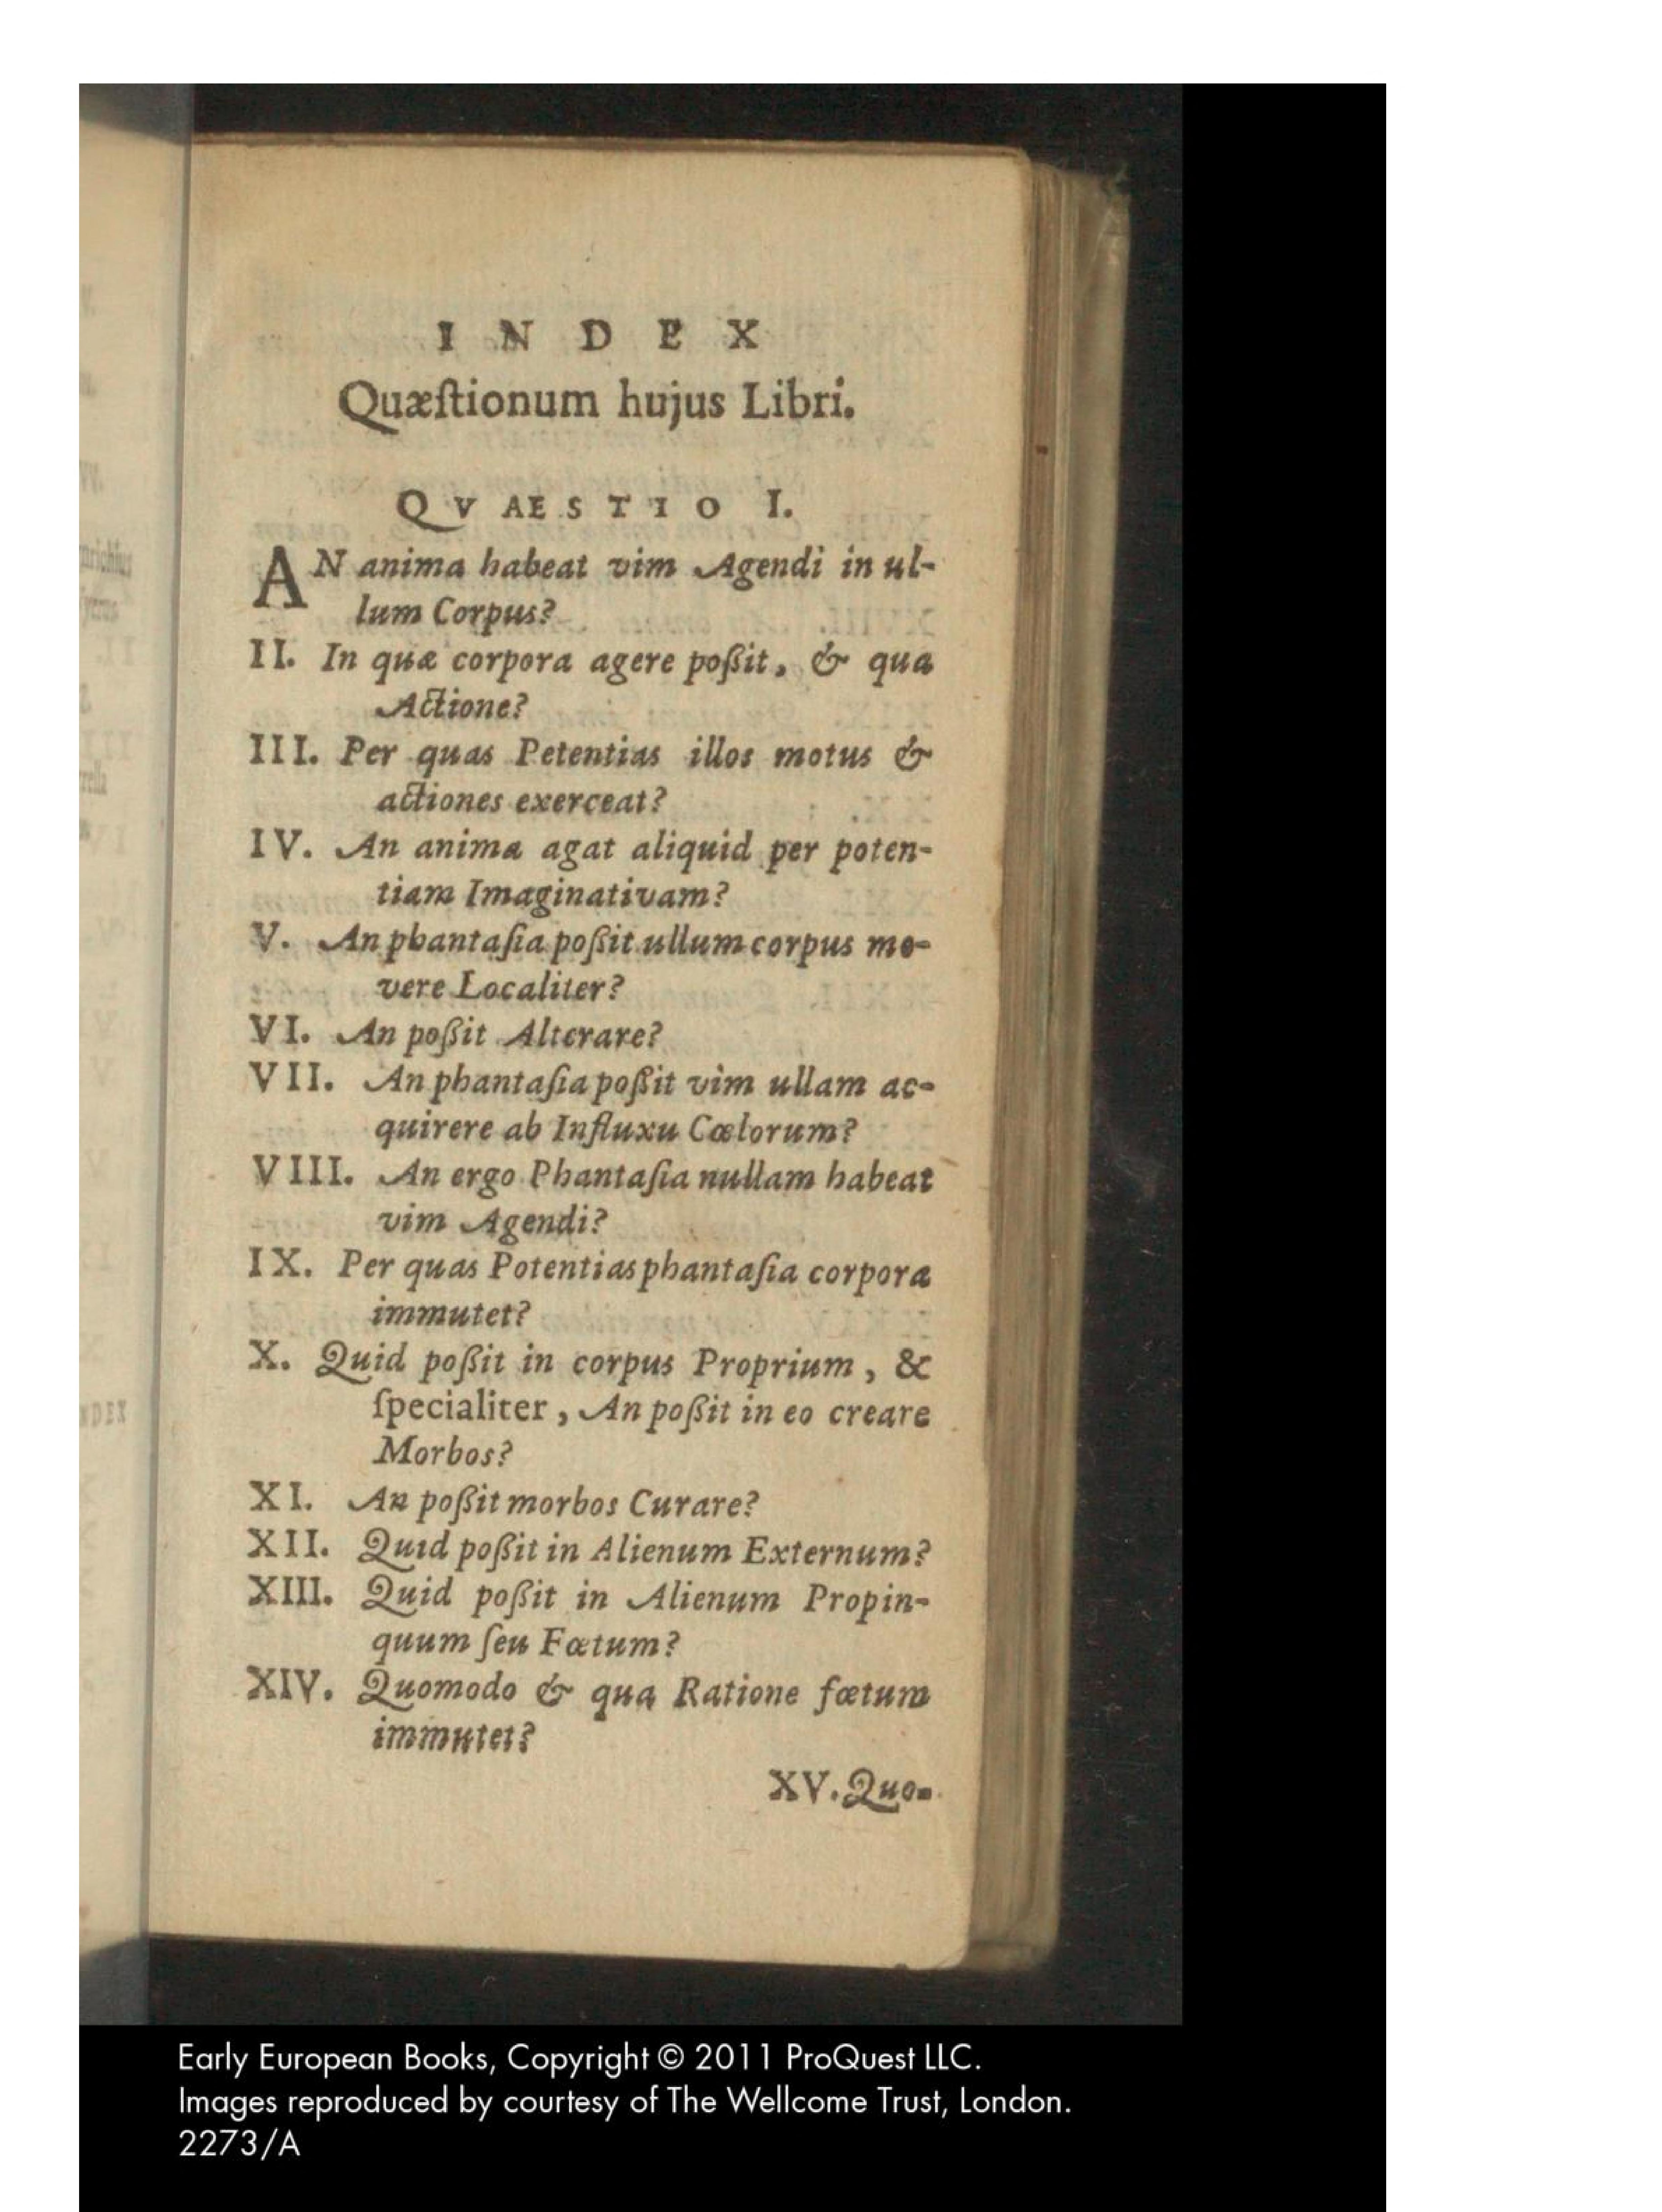 I N D E X
Quæſtionum hujus Libri.
Q V AE S T I O I.
AN anima habeat vim Agendi in ul-
lum Corpus?
II. In quæ corpora agere poßit, & qua
Actione?
III. Per quas Petentias illos motus &
actiones exerceat?
IV. An anima agat aliquid per poten-
tiam Imaginativam?
V. An phantaſia poßit ullum corpus mo-
vere Localiter?
VI. An poßit Alterare?
VII. An phantaſia poßit vim ullam ac-
quirere ab Influxu Cœlorum?
VIII. An ergo Phantaſia nullam habeat
vim Agendi?
IX. Per quas Potentias phantaſia corpora
immutet?
X. Quid poßit in corpus Proprium, &
ſpecialiter, An poßit in eo creare
Morbos?
XI. An poßit morbos Curare?
XII. Quid poßit in Alienum Externum?
XIII. Quid poßit in Alienum Propin-
quum ſeu Fœtum?
XIV. Quomodo & qua Ratione fœtum
immutet?
XV. Quo-
Early European Books, Copyright © 2011 ProQuest LLC.
Images reproduced by courtesy of The Wellcome Trust, London.
2273/A